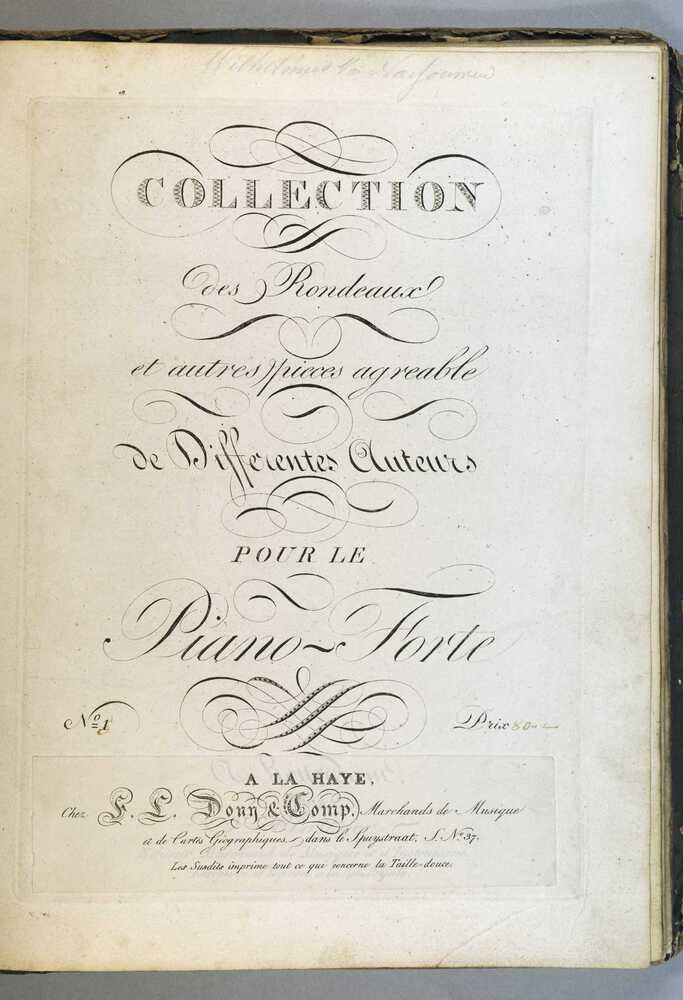 Wilhelmus van Nassouwen
COLLECTION
des Rondeaux
et autres pieces agreable
de Differentes Auteurs
POUR LE
Piano-Forte
Nº 1
Prix 80
A LA HAYE,
Chez F. L. Dony & Comp. Marchands de Musique
et de Cartes Géographiques, dans le Spuystraat, S. Nº 37.
Les Susdits imprime tout ce qui concerne la Taille-douce.